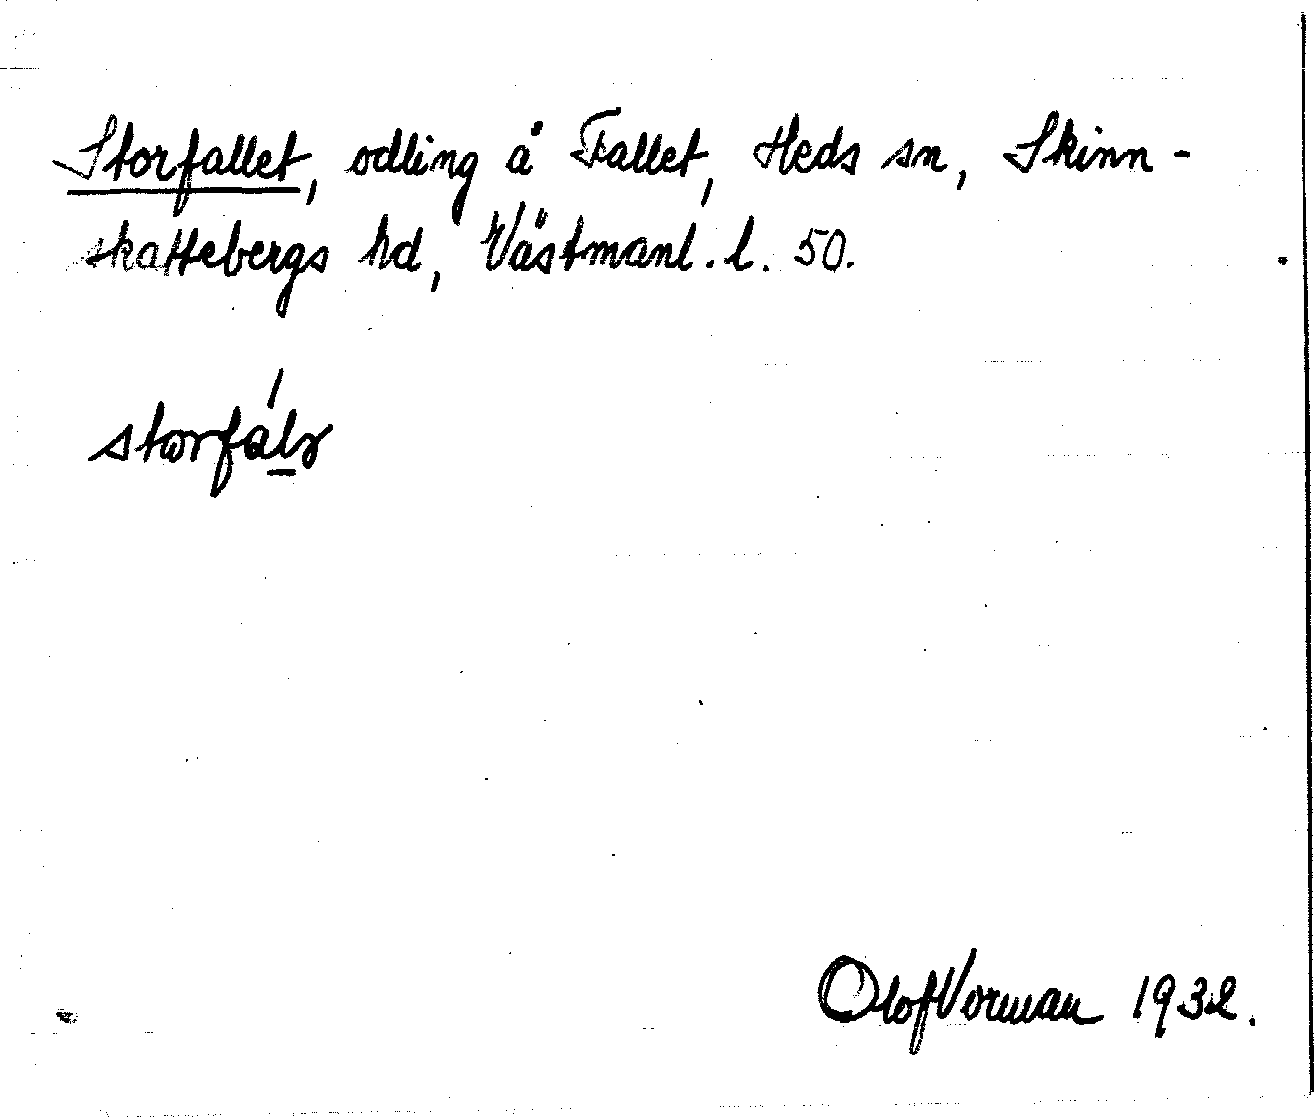 Storfallet, odling å Fallet, Heds sn, Skinn-
skattebergs hd, Västmanl. l. 50.
Olof Vorman 1932.